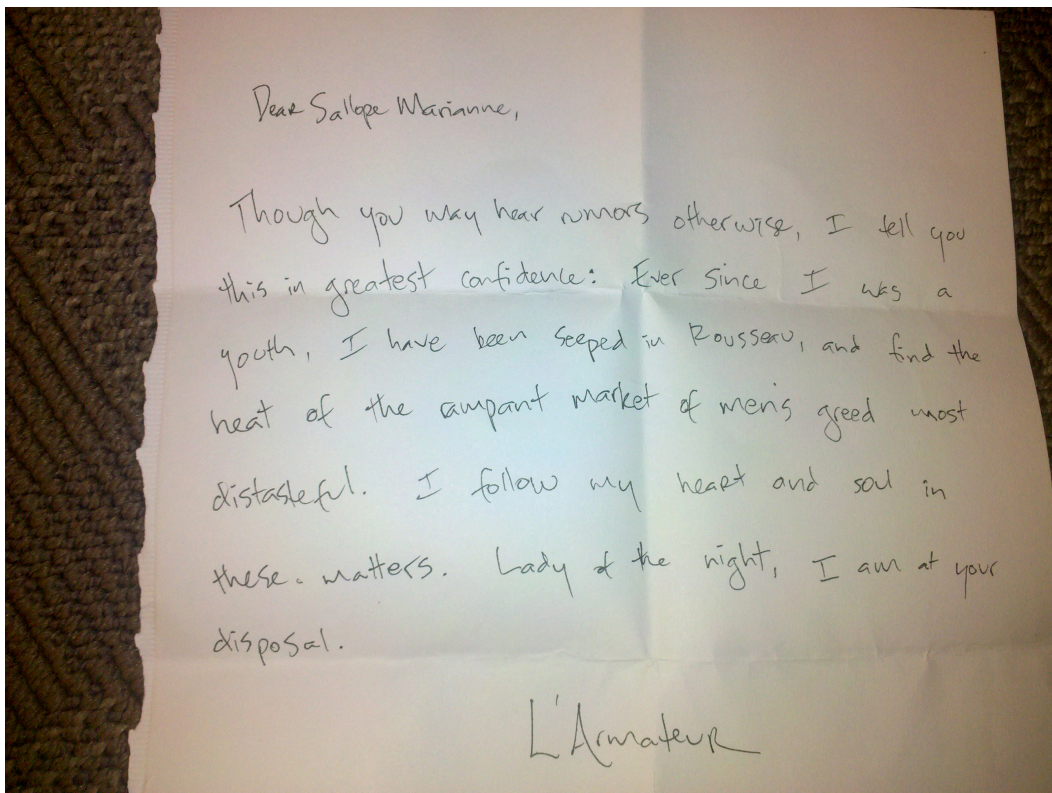 Dear Sallope Marianne,
Though you may hear rumors otherwise, I tell you
this in greatest confidence: Ever since I was a
youth, I have been seeped in Rousseau, and find the
heat of the rampant market of men's greed most
distasteful. I follow my heart and soul in
these. matters. Lady of the night, I am at your
disposal.
L'Armateur